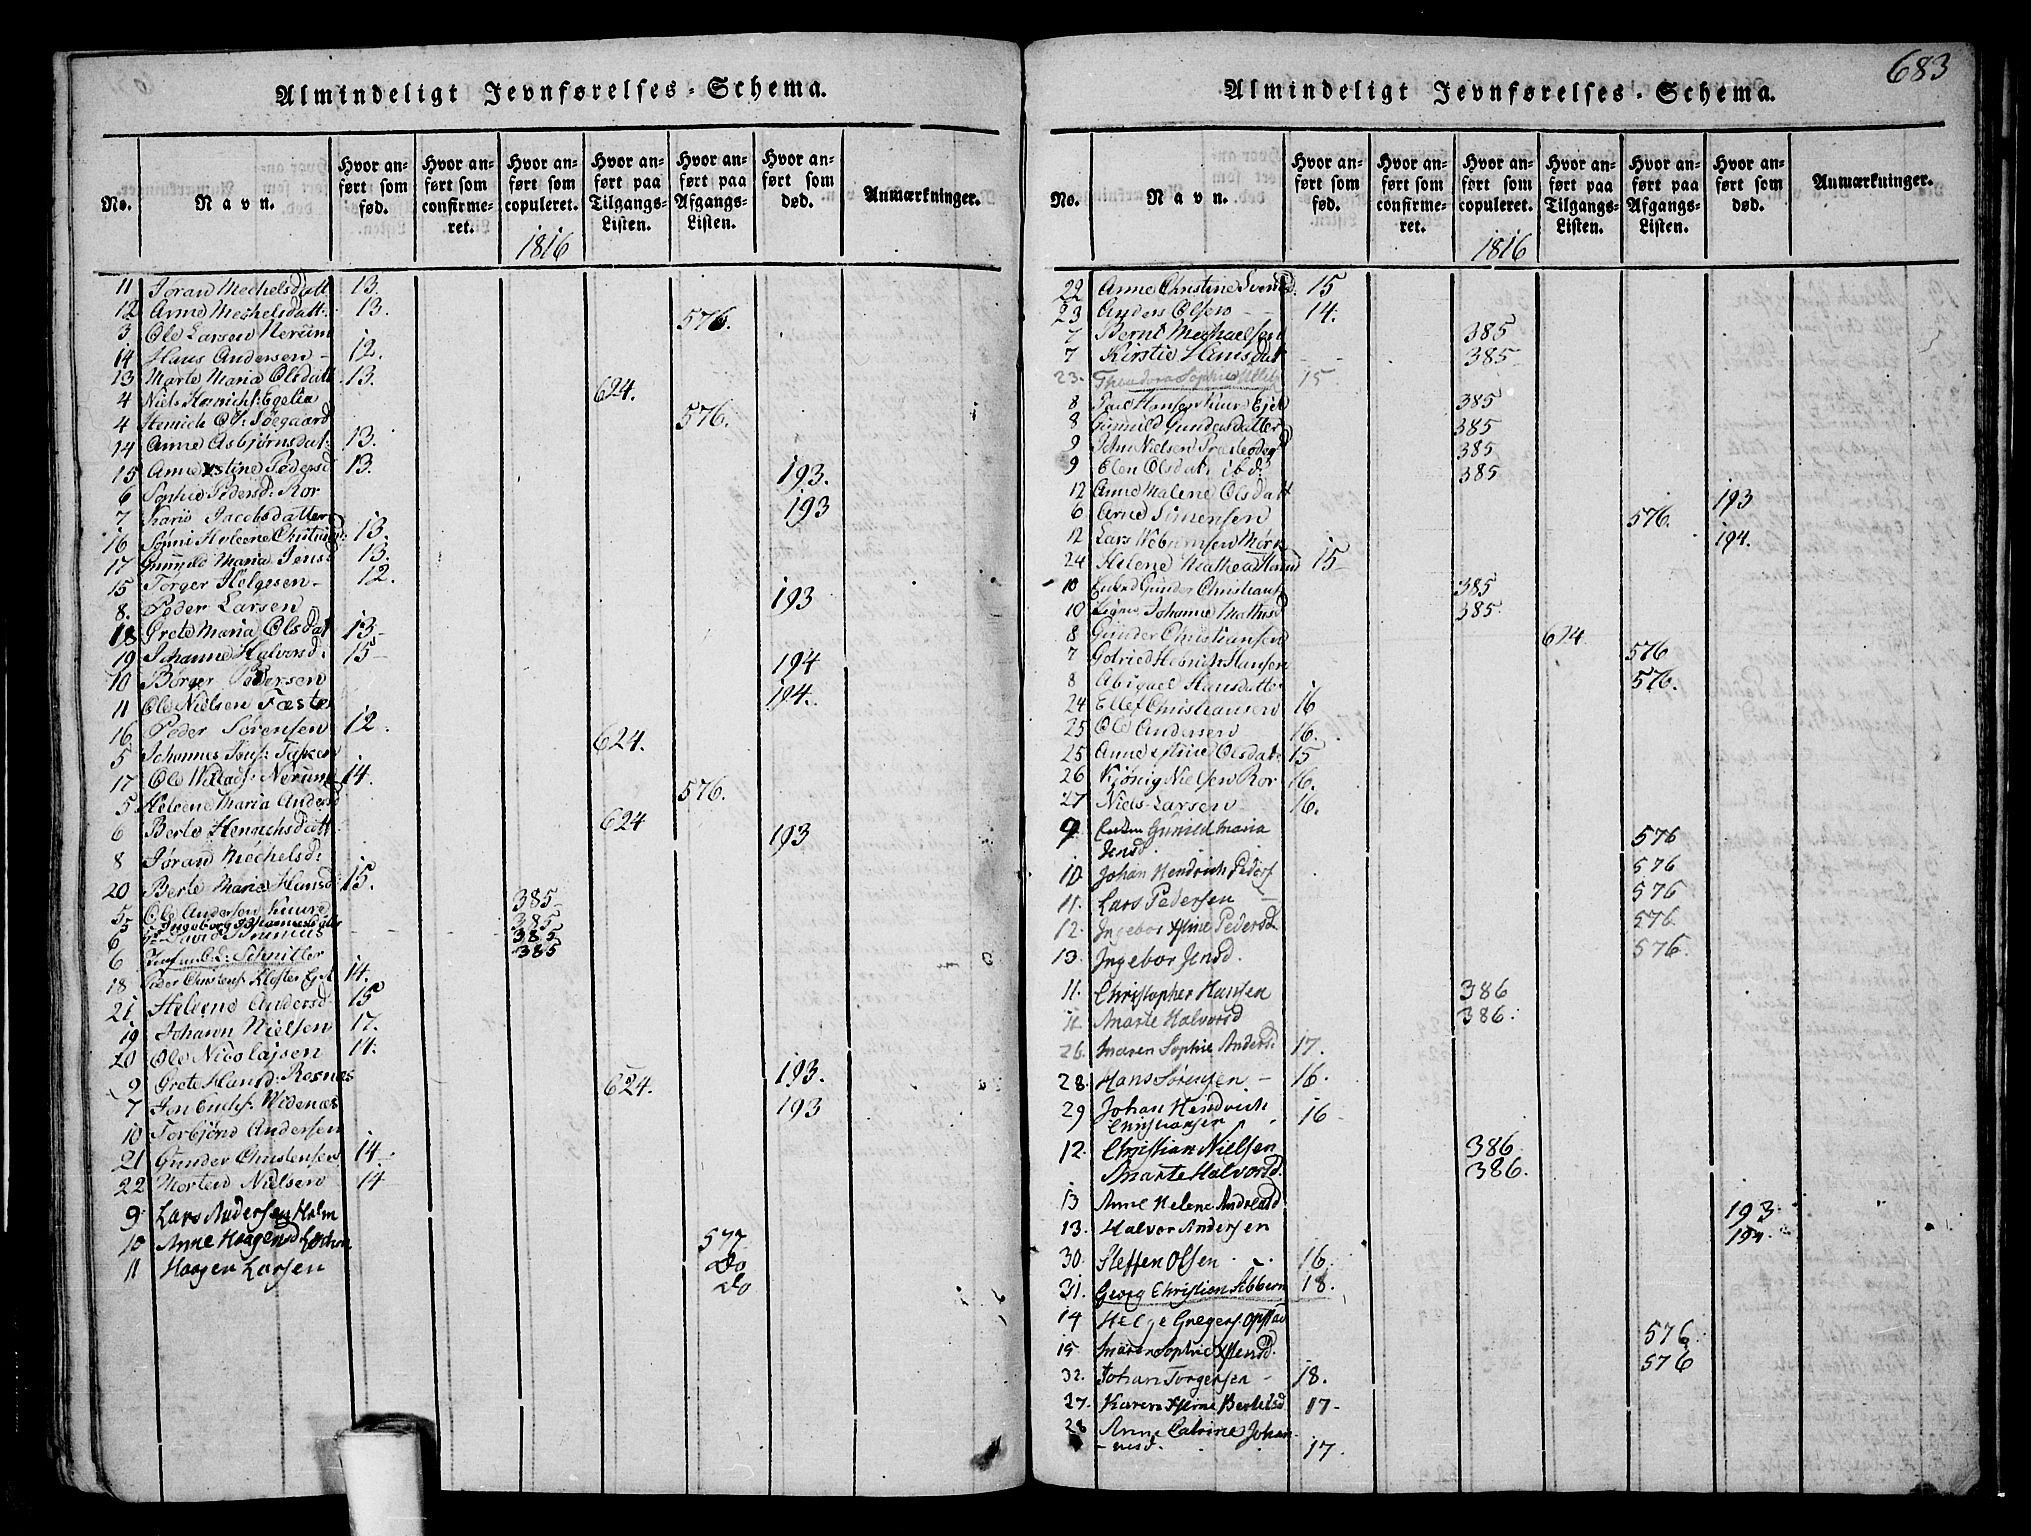 683
Almindeligt Jevnførelses-Schema.
No. Navn. Hvor anført som fød. Hvor anført som confirmeret. Hvor anført som copuleret. Hvor anført paa Tilgangs-Listen. Hvor anført paa Afgangs-Listen. Hvor anført som død. Anmærkninger.
1816
11 Jøran Mechelsdatt. 13.
12 Anne Mechelsdatt: 13.
3 Ole Larsen Nerüm 576.
14 Hans Andersen - 12.
13 Marte Maria Olsdatt. 13.
4 Niels Henrichs: Egelia 624.
4 Henrich Ol: Söegaard 576.
14 Anne Asbjørnsdat: 13.
15 Anne Xstine Pedersd 13.
6 Sophie Pedersd: Ror 193.
7 Kario Jacobsdatter 193
16 Helene 13.
17 Gunild Maria Jensd 13.
15 Torger Helgesen - 12.
8. Peder Larsen 193
18 Grete Maria Olsdat 13-
19 Johanne Halvorsd: 15-
10 Börger Pedersen 194
11 Ole Nielsen Fæste 194.
16 Peder Sørensen 12.
5 Johannes 624.
17 Ole Nerüm 14.
5 Helene Maria Andersd 576.
6 Berte Henrichsdatt 624
8 Jøran Mechelsd: 193
20 Berte Maria Hansd: 15.
5 Ole Andersen 385-
5 Ingeborg 385-
6 David 385
6 Schnitler 385
18 Peder Christens: Kloster 14.
21 Helene Andersd. 15
19 Johann Nielsen 17.
20 Ole Nicolajsen 14.
9 Grete Hansd: Rosnæs 193.
7 Jen Widenæs 624.
10 Torbjönd Andersen 193
21 Gunder Christensen 14.
22 Morten Nielsen 14
9. Lars Andersen Holm 577
10 Anne Haagensd Do
11 Haagen Larsen Do
Almindeligt Jevnførelses-Schema.
No. Navn. Hvor anført som fød. Hvor anført som confirmeret. Hvor anført som copuleret. Hvor anført paa Tilgangs-Listen. Hvor anført paa Afgangs-Listen. Hvor anført som død. Anmærkninger.
1816
22 Anne Christine Svends. 15
23 Anders Olsen - 14.
7 Bernt Mechaelsen 385
7 Kirstie Hansdat - - 385-
23. Theodora Sophie 15
8 Hansen 385
8 Gunnild Gundersdatter 385
9 John Nielsen 385
9 Elen Olsdat: ibd: 385
12 Anne Malene Olsdatt 193
6 Arne Simensen 576.
12 Lars Mörk 194.
24 Helene Mathea 15-
10 Gunder Christians: 385
10 Johanne Mathisd 385.
8 Gunder Christiansen 624
7 Gotried Henrich Hansen 576
8 Abigael Hansdatter 576.
24 Ellef Christiansen 16
25 Ole Andersen 16.
25 Anne Xstine Olsdat: 15
26 Kjönig Nielsen Ror 16.
27 Niels Larsen 16.
9 Gunild Maria
Jensd. 576
10 Johan Hendrich Peders 576
11. Lars Pedersen - 576
12. Ingebor Xstine Pedersd. 576
13. Ingebor Jensd. 576.
11. Christopher Hansen 386
11 Marte Halvorsd 386.
26. Maren Sophie Andersd. 17.
28. Hans Sörensen - 16.
29 Johan Hendrich
Christiansen 16
12. Christian Nielsen 386.
Marte Halvorsd. 386.
13 Anne Helene Andreasd. 193.
13. Halvor Andersen 194.
30. Steffen Olsen 16.
31. Georg Christian Sibbern 18.
14 Helge Gregers. Opstad 576.
15 Maren Sophie Jensd. 576
32. Johan Torgersen - 18.
27. Karen Xstine Bertelsd 17-
28 Anne Catrine Johan-
-nesd. 17.